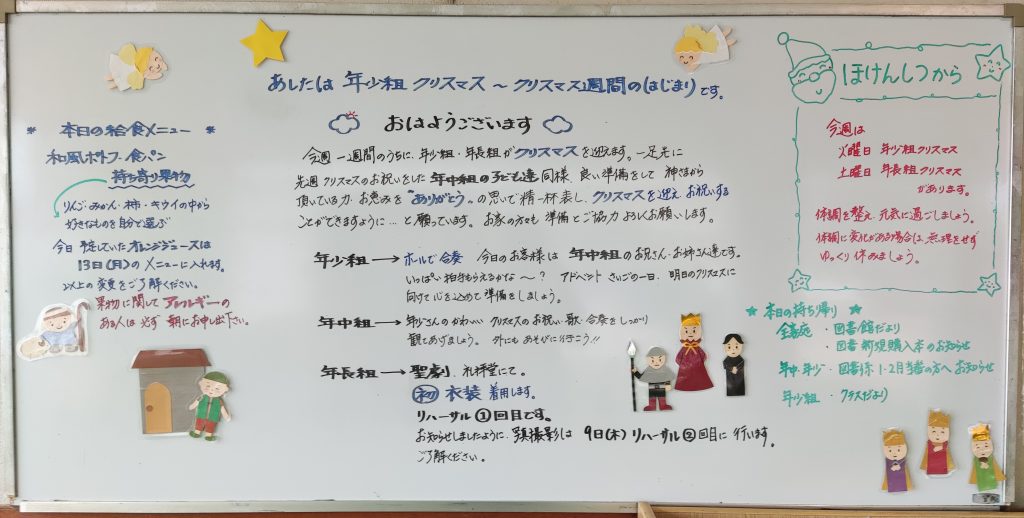 あしたは 年少組 クリスマス ～ クリスマス週間のはじまりです。
おはようございます
今週 一週間のうちに、年少組・年長組がクリスマスを迎えます。一足先に
先週 クリスマスのお祝いをした 年中組の子ども達同様、良い準備をして 神さまから
頂いている力、お恵みを "ありがとう" の思いで精一杯表し、クリスマスを迎え お祝いする
ことができますように… と願っています。お家の方々も 準備とご協力 よろしくお願いします。
年少組 → ホールで合奏 今日のお客様は 年中組のお兄さん・お姉さん達です。
いっぱい拍手もらえるかな～？ アドベント さいごの一日、明日のクリスマスに
向けて心を込めて準備をしましょう。
年中組 → 年少さんのかわいい クリスマスのお祝い・歌・合奏をしっかり
観てあげましょう。 外にもあそびに行こう!!
年長組 → 聖劇、礼拝堂にて。
初 衣装 着用します。
リハーサル ①回目です。
お知らせしましたように、 撮影は 9日(木) リハーサル②回目に 行います。
ご了解ください。
* 本日の給食メニュー *
和風ポトフ・食パン
持ち寄り果物
りんご・みかん・柿・キウイの中から
好きなものを自分で選ぶ
今日 予定していた オレンジジュースは
13日(月)の メニューに入れます。
以上の変更をご了解ください。
果物に関して アレルギーの
ある人は必ず 朝にお申し出下さい。
ほけんしつから
今週は
火曜日 年少組クリスマス
土曜日 年長組クリスマス
があります。
体調を整え、元気に過ごしましょう。
体調に変化がある場合は、無理をせず
ゆっくり 休みましょう。
★ 本日の持ち帰り ★
全家庭 ・図書館だより
・図書 新規購入本のお知らせ
年中・年少 ・図書係 1・2月当番の方へ お知らせ
年少組 ・クラスだより